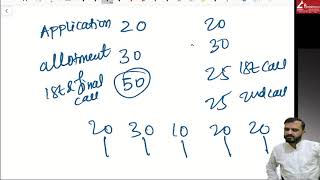 Application 20 20
allotment 30 30
1st & final call 50 25 1st call
25 2nd call
20 30 10 20 20